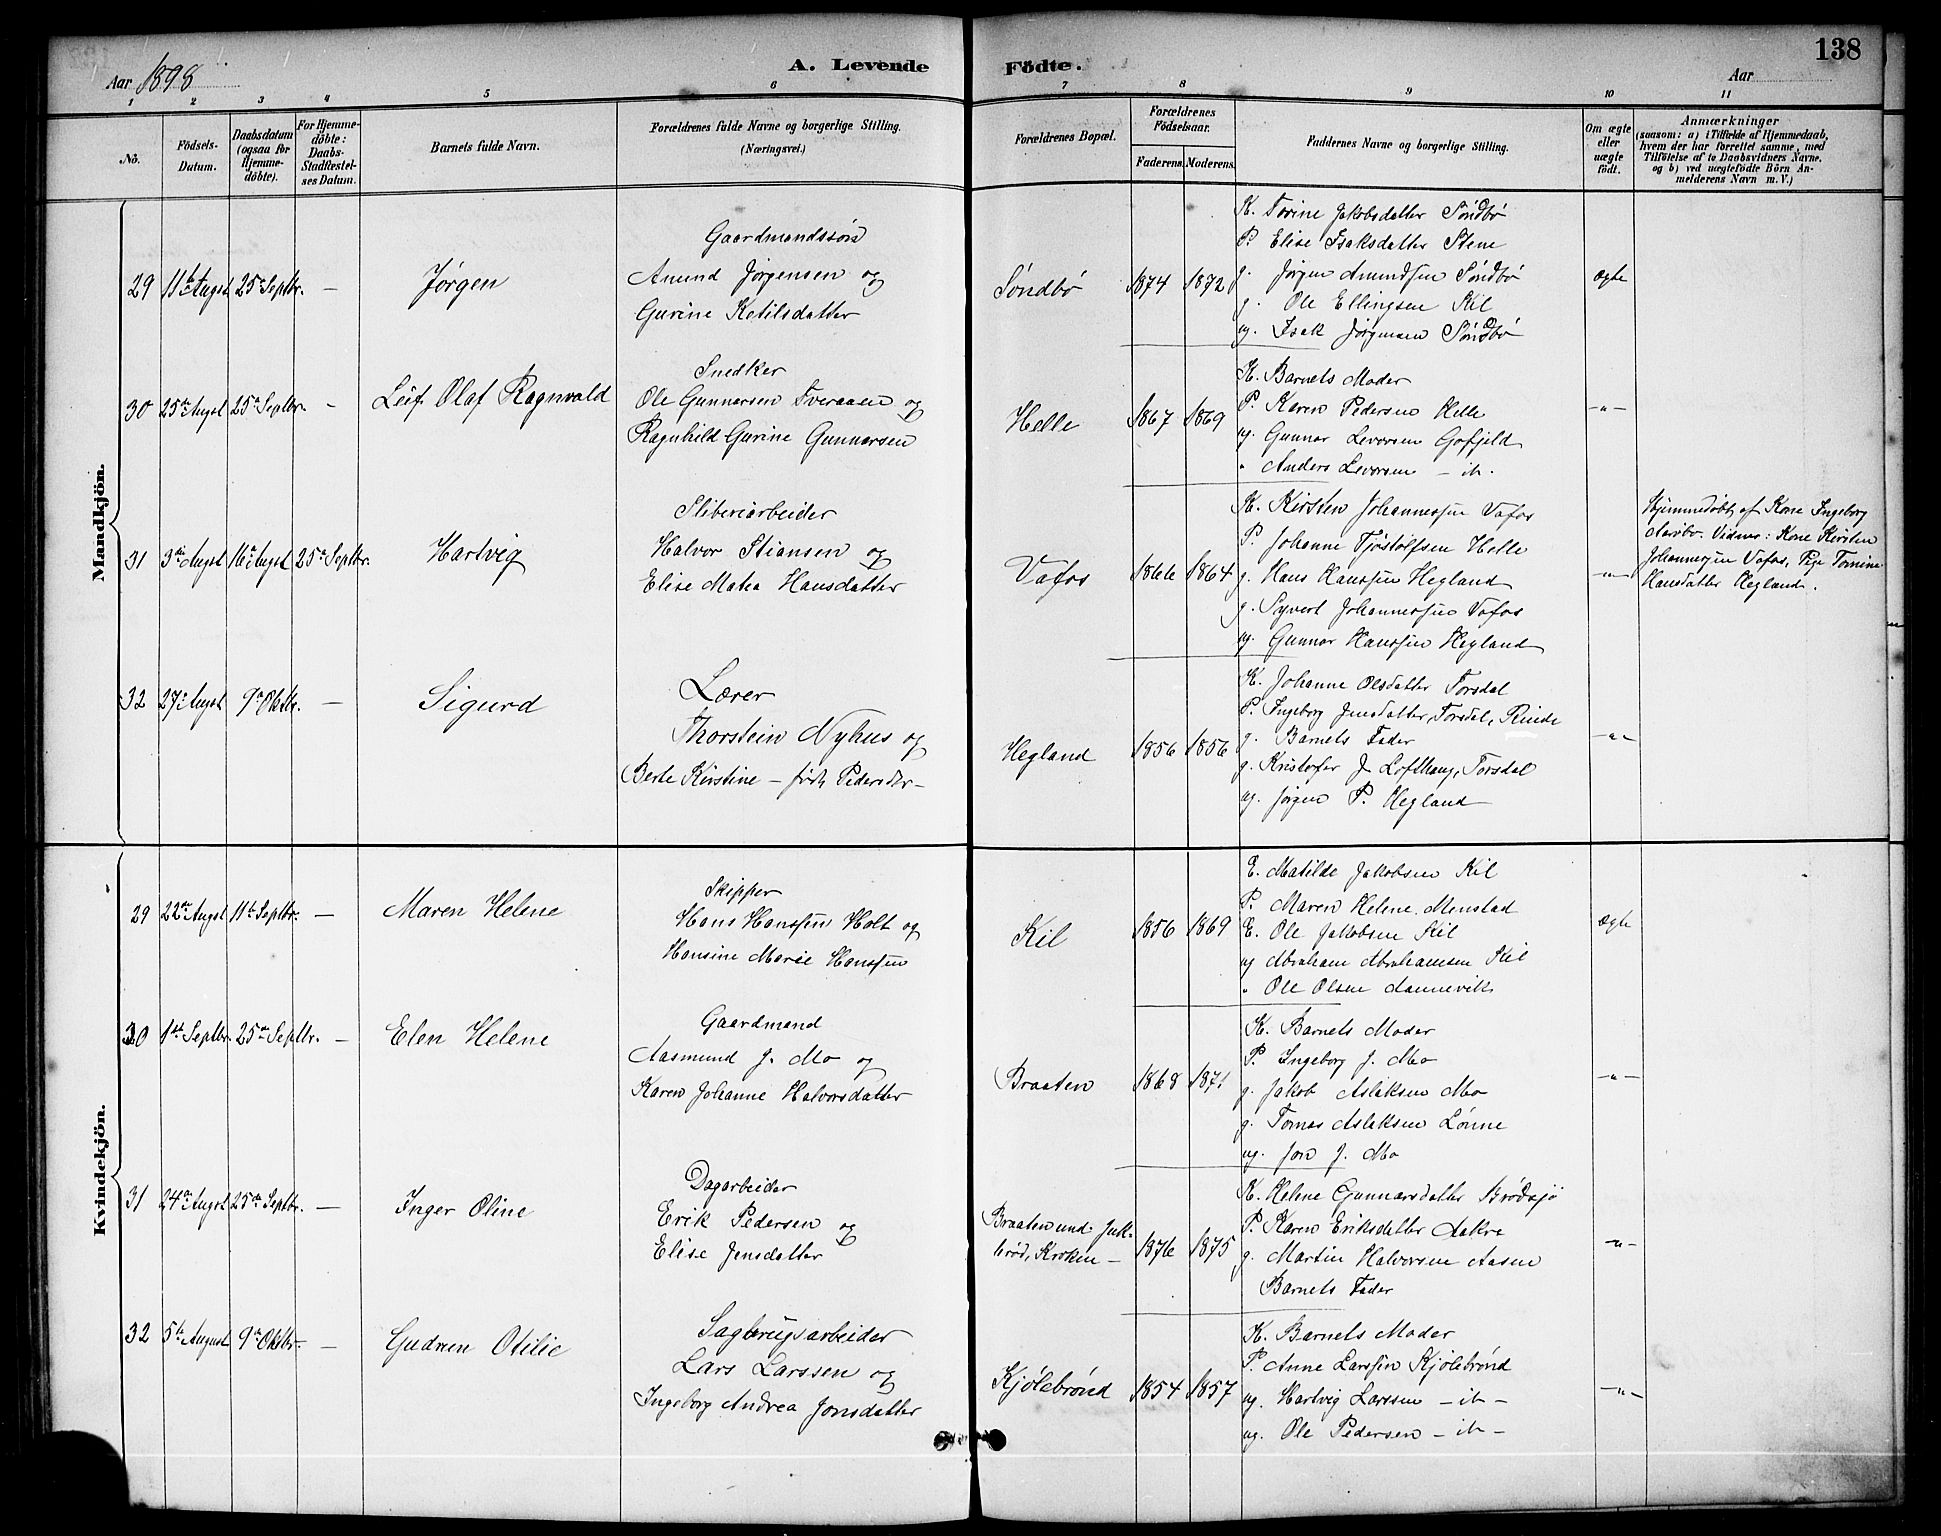 138
Aar 1898.
A. Levende
Födte.
Aar
1 2 3 4 5 6 7 8 9 10 11
No.
Födsels-
Datum.
Daabsdatum
(ogsaa for
Hjemme-
döbte).
For Hjemme-
döbte:
Daabs-
Stadfæstel-
ses Datum.
Barnets fulde Navn.
Forældrenes fulde Navne og borgerlige Stilling.
(Næringsvei.)
Forældrenes Bopæl.
Forældrenes
Födselsaar.
Faderens. Moderens.
Faddernes Navne og borgerlige Stilling.
Om ægte
eller
uægte
födt.
Anmærkninger
(saasom: a) i Tilfælde af Hjemmedaab,
hvem der har forrettet samme, med
Tilföielse af to Daabsvidners Navne,
og b) ved uægtefödte Börn An-
melderens Navn m. V.)
Mandkjön.
29 11te Augst 25de Septbr. —
Jørgen
Gaardmandssøn
Amund Jørgensen og
Gurine Ketilsdatter
Søndbø
1874 1872
K. Torine Jakobsdatter Søndbø
P. Elise Isaksdatter Stene
g. Jørgen Amundsen Søndbø
g. Ole Ellingsen Kil
ug. Isak Jørgensen Søndbø
ægte
30 25de Augst 25de Septbr. —
Leif Olaf Ragnvald
Snedker
Ole Gunnarsen Tveraaen og
Ragnhild Gurine Gunnarsen
Helle
1867 1869
K. Barnets Moder
P. Karen Pedersen Helle
ug. Gunnar Levorsen Gofjeld
" Anders Levorsen — it.
—"—
31 3die Augst 16de Augst 25de Septbr.
Hartvig
Sliberiarbeider
Halvor Stiansen og
Elise Matea Hansdatter
Vafos
1866 1864
K. Kirsten Johannessen Vafos
P. Johanne Tjøstolfsen Helle
g. Hans Hanssen Hegland
g. Syvert Johannessen Vafos
ug. Gunnar Hanssen Hegland
—"—
Hjemmedøbt af Kone Ingeborg
Vidner: Kone Kirsten
Johannessen Vafos, Pige Tomine
Hansdatter Hegland.
32 27de Augst 9de Oktbr. —
Sigurd
Lærer
Thorstein Nyhus og
Berte Kirstine — født Pedersdtr —
Hegland
1856 1856
K. Johanne Olsdatter Torsdal
P. Ingeborg Jensdatter, Torsdal, Rinde
g. Barnets Fader
g. Kristofer J. Lofthaug, Torsdal
ug. Jørgen P. Hegland
—"—
Kvindekjön.
29 22de Augst 11te Septbr. —
Maren Helene
Skipper
Hans Hanssen Holt og
Hansine Marie Hanssen
Kil
1856 1869
E. Matilde Jakobsen Kil
P. Maren Helene Menstad
E. Ole Jakobsen Kil
ug Abraham Abrahamsen Kil
" Ole Olsen Aannevik
ægte
30 1ste Septbr. 25de Septbr. —
Elen Helene
Gaardmand
Aasmund J. Mo og
Karen Johanne Halvorsdatter
Braaten
1868 1871
K. Barnets Moder
P. Ingeborg J. Mo
g. Jakob Aslaksen Mo
g. Tomas Aslaksen Lønne
ug. Jon J. Mo
—"—
31 24de Augst 25de Septbr. —
Inger Oline
Dagarbeider
Erik Pedersen og
Elise Jensdatter
Braaten und.
brød, Kroken —
1876 1875
K. Helene Gunnarsdatter Brødsjø
P. Karen Eriksdatter Aakre
g. Martin Halvorsen Aasen
Barnets Fader
—"—
32 5te August 9de Oktbr. —
Gudrun Otilie
Sagbrugsarbeider
Lars Larssen og
Ingeborg Andrea Jonsdatter
Kjølebrønd
1854 1857
K. Barnets Moder
P. Anne Larssen Kjølebrønd
ug. Hartvig Larssen — it —
ug. Ole Pedersen — it —
—"—